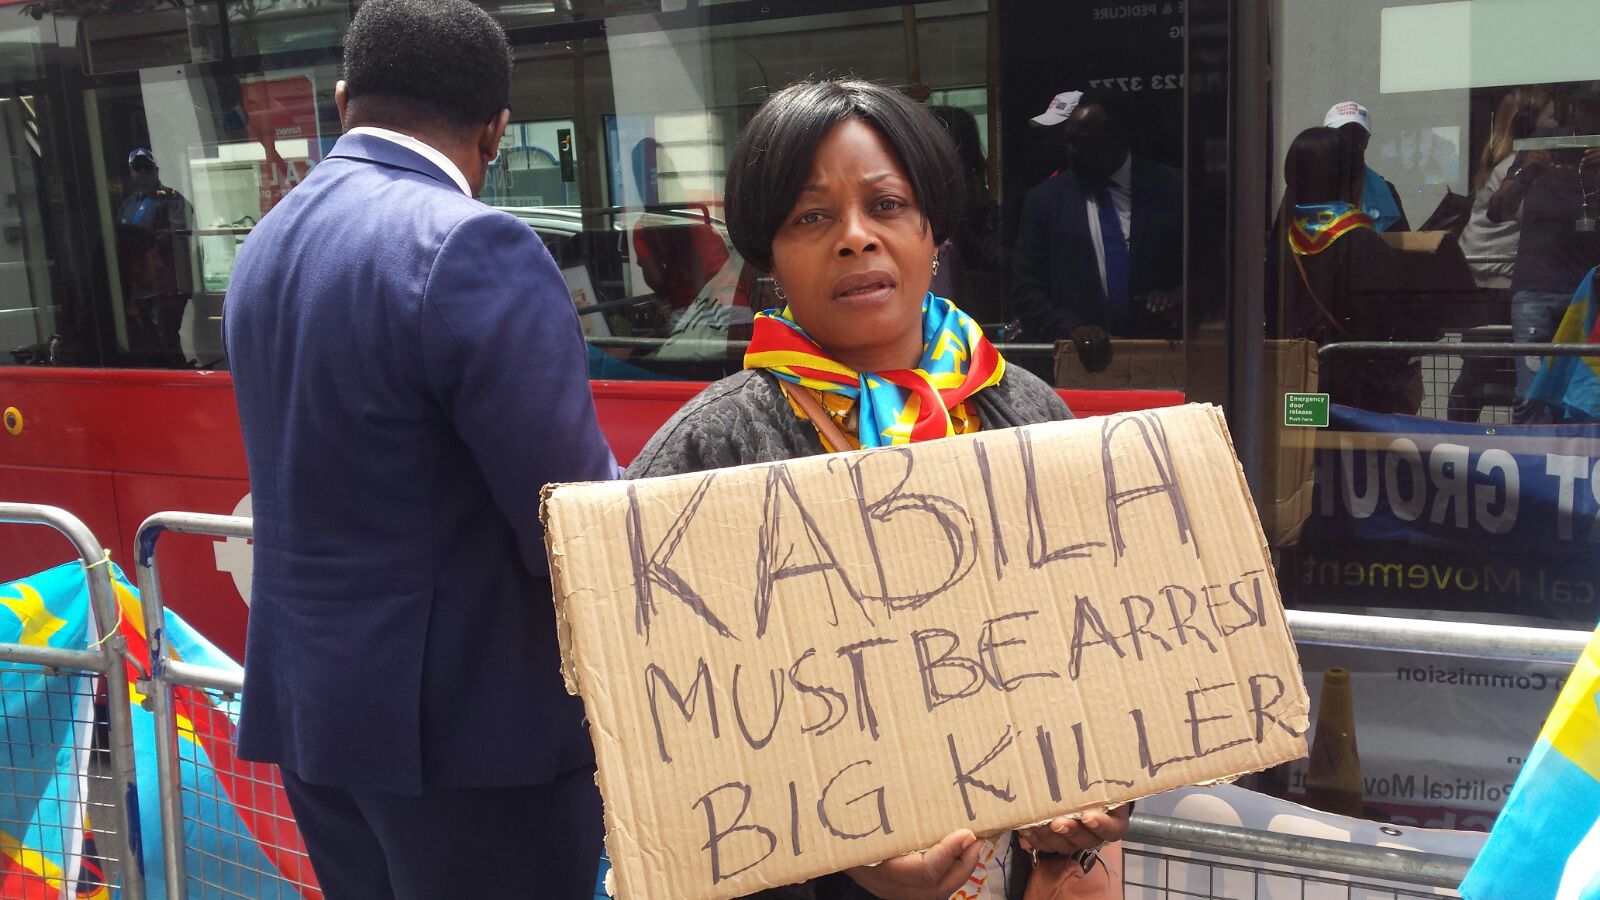 KABILA
MUST BE ARREST
BIG KILLER
Emergency
door
release
Push here
& PEDICURE
823 3777
RT GROUP
cal Movement
n Commission
Political Mov